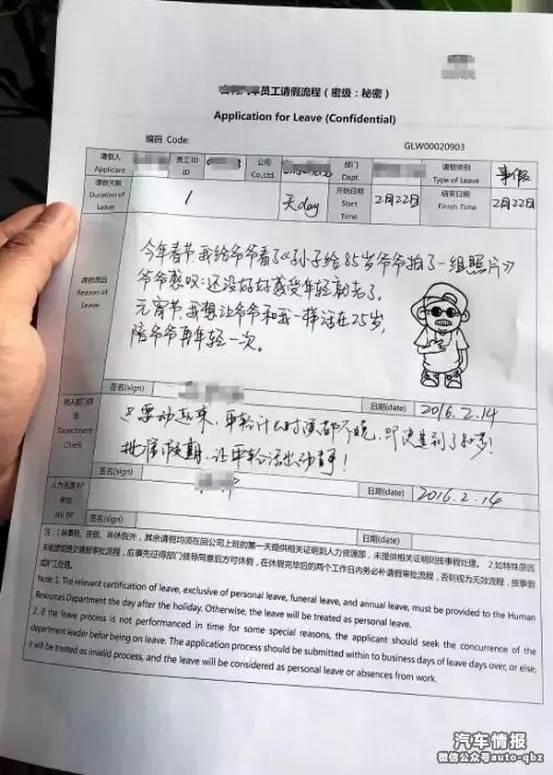 员工请假流程（密级：秘密）
Application for Leave (Confidential)
编码 Code: GLW00020903
请假人 Applicant 员工ID ID 公司 Co,Ltd. 部门 Dept. 请假类别 Type of Leave 事假
请假天数 Duration of Leave 1 天day 开始日期 Start Time 2月22日 结束日期 Finish Time 2月22日
请假原因 Reason of Leave
今年春节,我给爷爷看了《孙子给85岁爷爷拍了一组照片》
爷爷感叹:还没好好感受年轻就老了。
元宵节,我想让爷爷和我一样活在25岁,
陪爷爷再年轻一次。
签名(sign) 日期(date) 2016.2.14
Department Chiefs
只要动起来,年轻什么时候都不晚,即使是到了80岁!
批准假期,让年轻活出动静!
签名(sign) 日期(date) 2016.2.14
人力资源BP
HR BP
签名(sign) 日期(date)
注：1.除事假、丧假、年休假外，其余请假均须在回公司上班的第一天提供相关证明到人力资源部，未提供相关证明则按事假处理。 2.如特殊原因
未能提前提交请假审批流程，应事先征得部门领导同意后方可休假，在休假完毕后的两个工作日内务必补请假审批流程，否则视为无效流程，按事假
或旷工处理。
Note: 1. The relevant certification of leave, exclusive of personal leave, funeral leave, and annual leave, must be provided to the Human
Resources Department the day after the holiday. Otherwise, the leave will be treated as personal leave.
2. if the leave process is not performanced in time for some special reasons, the applicant should seek the concurrence of the
department leader befor being on leave. The application process should be submitted within to business days of leave days over, or else,
it will be treated as invalid process, and the leave will be considered as personal leave or absences from work.
汽车情报
微信公众号auto-qbz